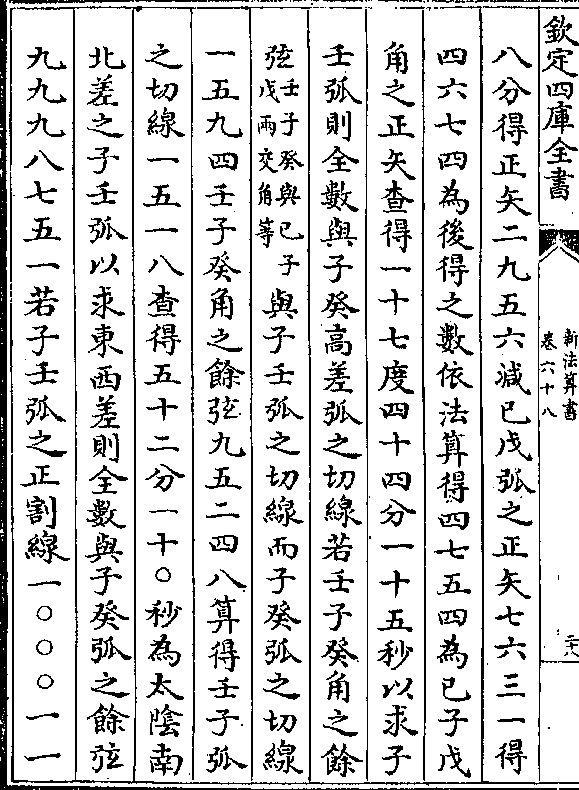 欽定四庫全書
新法算書
卷六十八
八分得正矢二九五六減已戊弧之正矢七六三一得
四六七四為後得之數依法算得四七五四為已子戊
角之正矢查得一十七度四十四分一十五秒以求子
壬弧則全數與子癸高差弧之切線若壬子癸角之餘
弦壬子癸與已子戊兩交角等與子壬弧之切線而子癸弧之切線
一五九四壬子癸角之餘弦九五二四八算得壬子弧
之切線一五一八查得五十二分一十〇秒為太陰南
北差之子壬弧以求東西差則全數與子癸弧之餘弦
九九九八七五一若子壬弧之正割線一〇〇〇一一